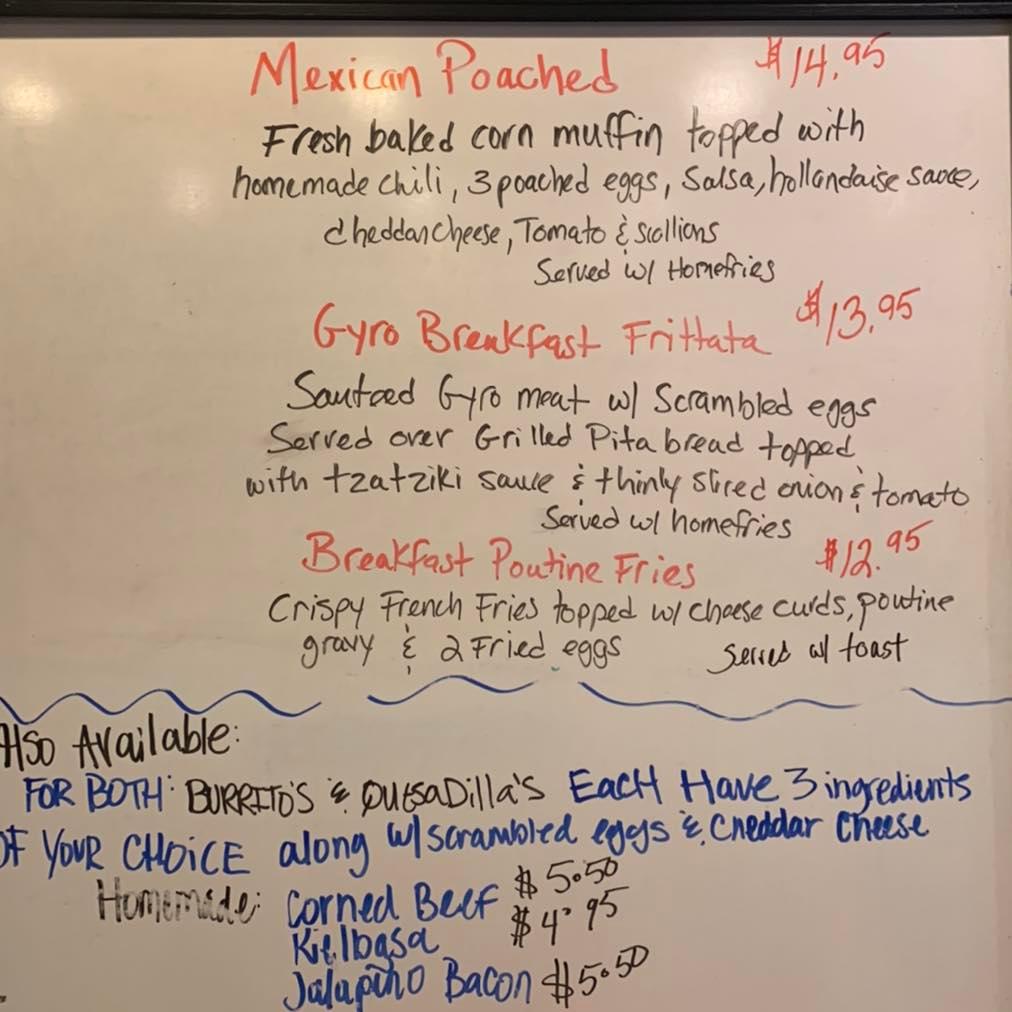 Mexican Poached $14.95
Fresh baked corn muffin topped with
homemade chili, 3 poached eggs, Salsa, hollandaise sauce,
cheddar cheese, Tomato & scallions
Served w/ Homefries
Gyro Breakfast Frittata $13.95
Sauteed Gyro meat w/ Scrambled eggs
Served over Grilled Pita bread topped
with tzatziki sauce & thinly sliced onion & tomato
Served w/ homefries
Breakfast Poutine Fries $12.95
Crispy French Fries topped w/ cheese curds, poutine
gravy & 2 Fried eggs served w/ toast
Also Available:
FOR BOTH: BURRITO'S & QUESADILLA'S EACH HAVE 3 ingredients
OF YOUR CHOICE along w/ scrambled eggs & Cheddar Cheese
Homemade: Corned Beef $5.50
Kielbasa $4.95
Jalapiño Bacon $5.50